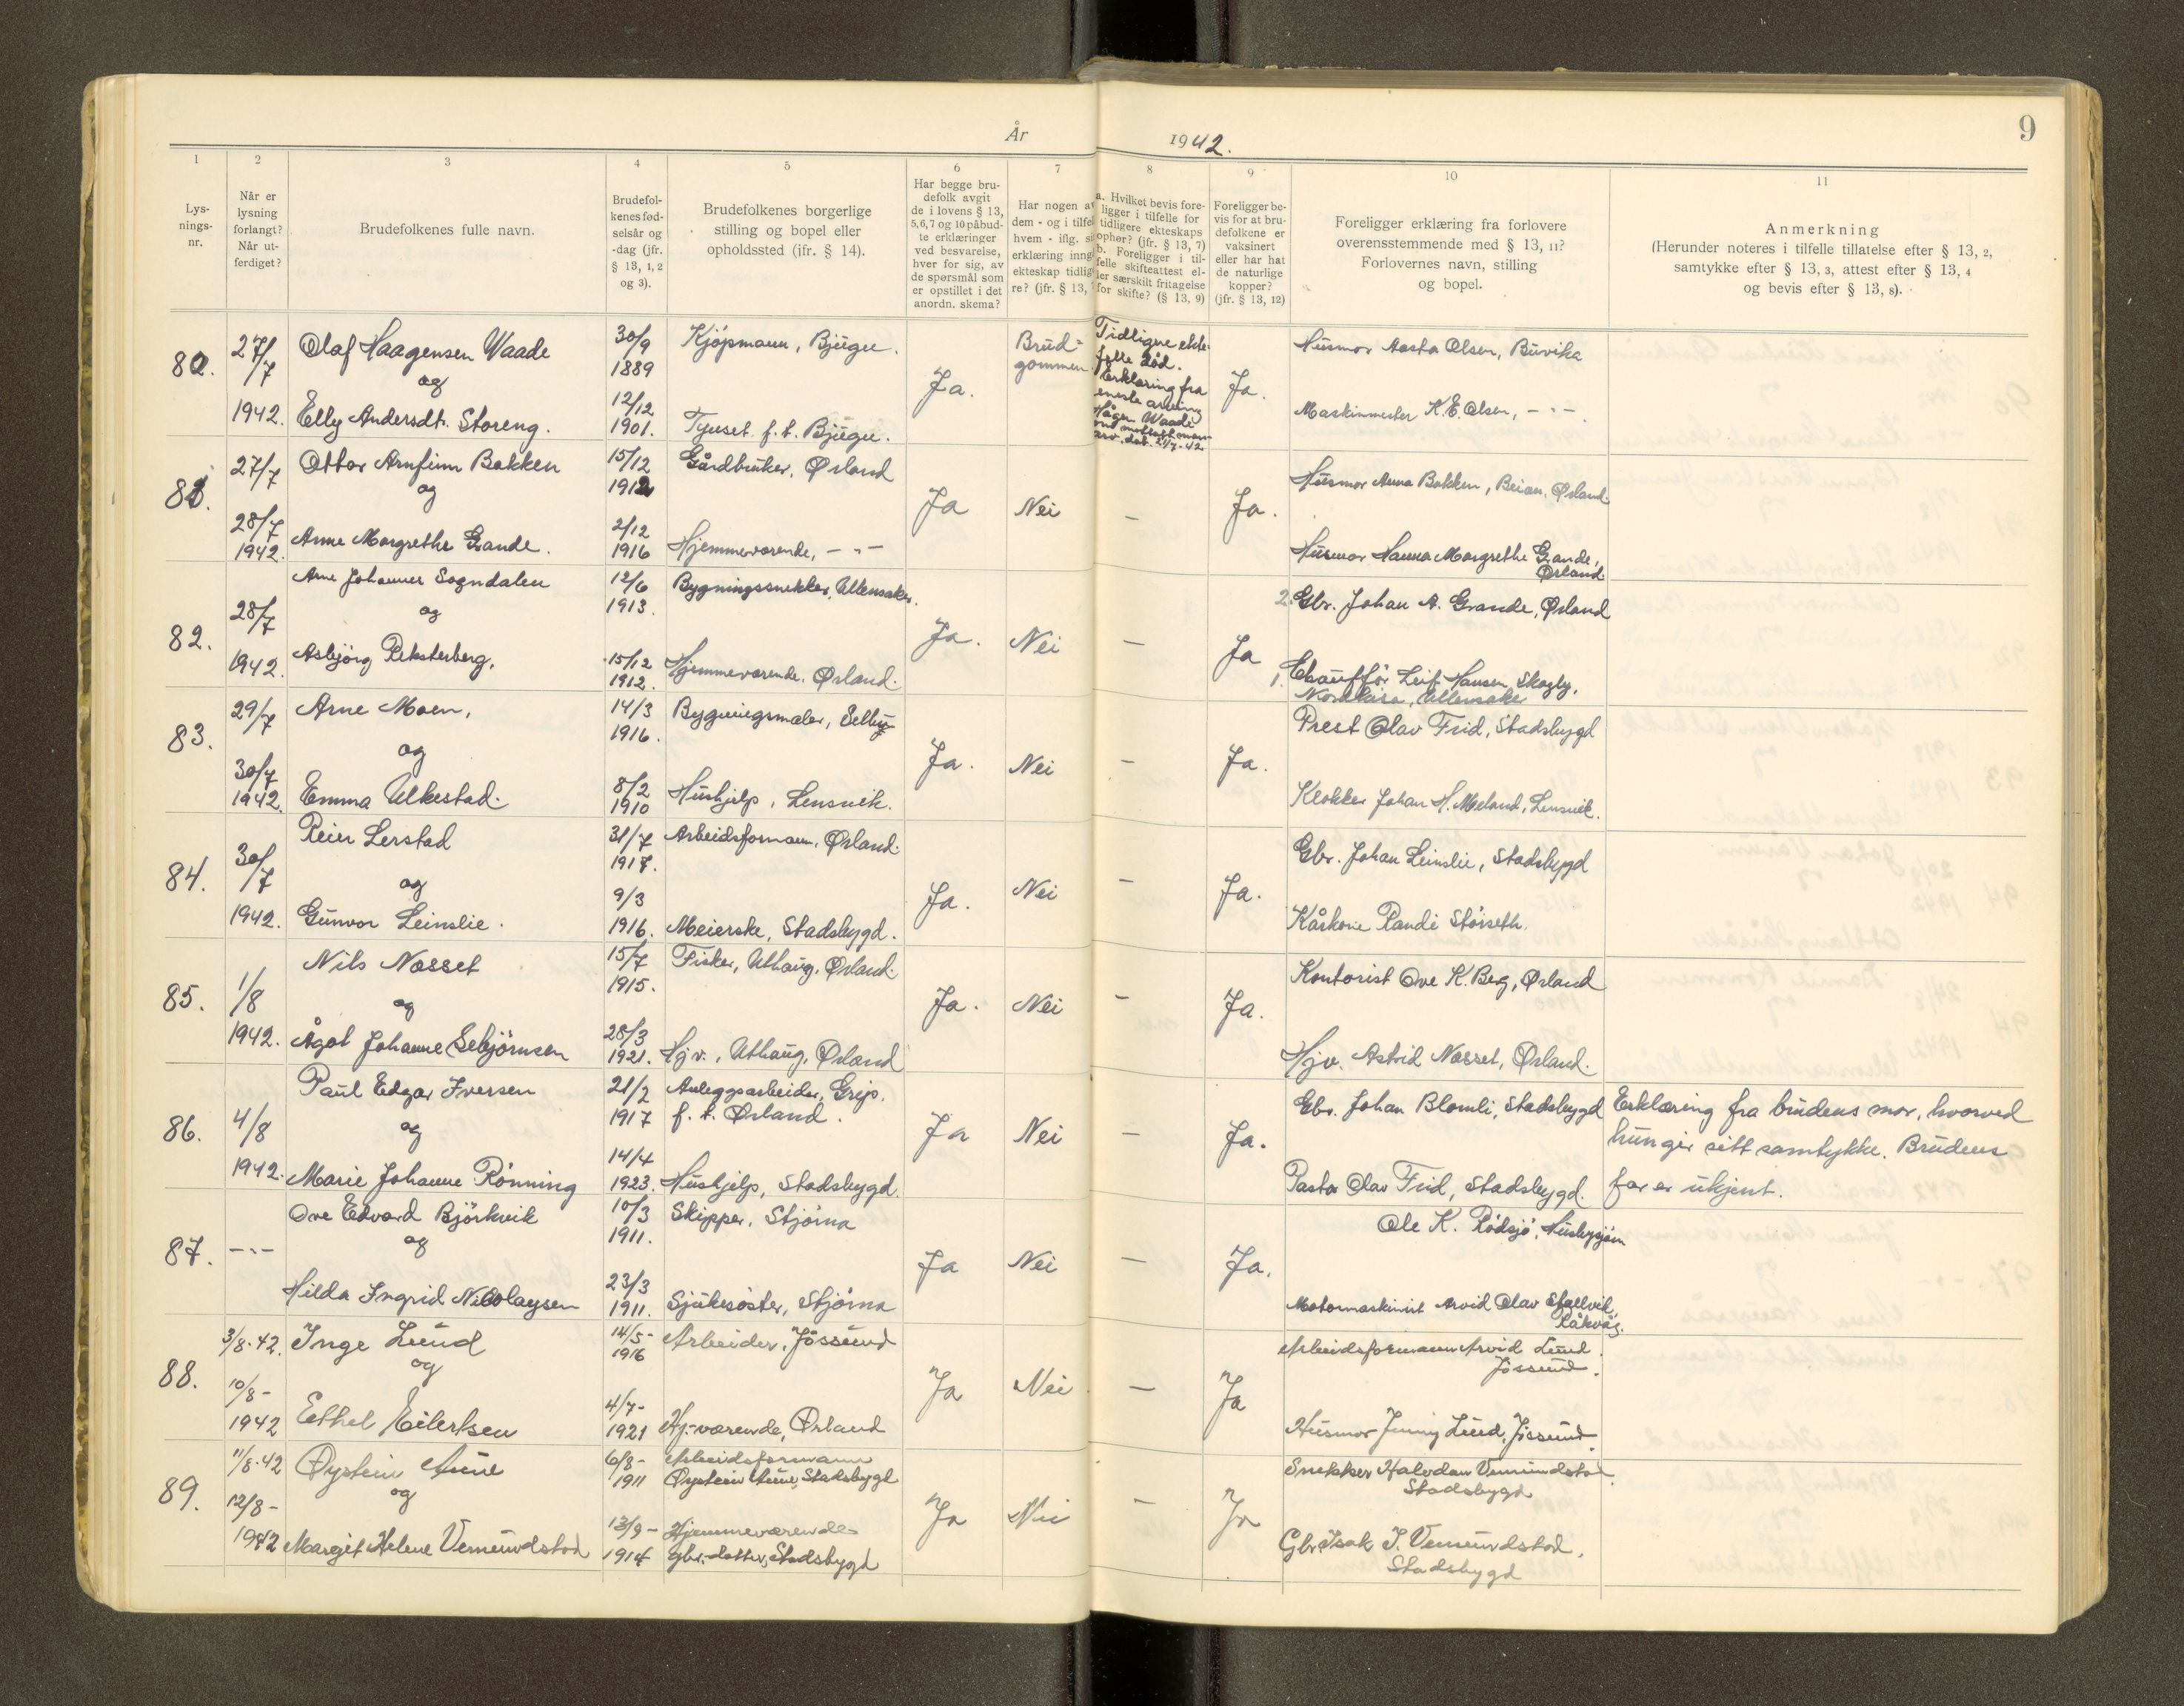 År 1942.
9
1
Lys-
nings-
nr.
2
Når er
lysning
forlangt?
Når ut-
ferdiget?
3
Brudefolkenes fulle navn.
4
Brudefol-
kenes fød-
selsår og
-dag (jfr.
§ 13, 1, 2
og 3).
5
Brudefolkenes borgerlige
stilling og bopel eller
opholdssted (jfr. § 14).
6
Har begge bru-
defolk avgit
de i lovens § 13,
5,6,7 og 10 påbud-
te erklæringer
ved besvarelse,
hver for sig, av
de spørsmål som
er opstillet i det
anordn. skema?
7
Har nogen av
dem - og i tilfel
hvem - iflg. si
erklæring inng
ekteskap tidlig
re? (jfr. § 13,
8
a. Hvilket bevis fore-
ligger i tilfelle for
tidligere ekteskaps
ophør? (jfr. § 13, 7)
b. Foreligger i til-
felle skifteattest el-
ler særskilt fritagelse
for skifte? (§ 13, 9)
9
Foreligger be-
vis for at bru-
defolkene er
vaksinert
eller har hat
de naturlige
kopper?
(jfr. § 13, 12)
10
Foreligger erklæring fra forlovere
overensstemmende med § 13, 11?
Forlovernes navn, stilling
og bopel.
11
Anmerkning
(Herunder noteres i tilfelle tillatelse efter § 13, 2,
samtykke efter § 13, 3, attest efter § 13, 4
og bevis efter § 13, 8).
80.
27/7
1942.
Olaf Haagensen Waade
og
Elly Andersdt. Storeng.
30/9
1889
12/12
1901.
Kjöpmann, Bjugn.
Tynset f. t. Bjugn.
Ja.
Brud-
gommen
Tidligere ekte-
felle død.
Erklæring fra
eneste arving
Hågen Waade
om mottatt
arv. dat. 21/7-42
Ja.
Husmor Aasta Olsen, Buvika
Maskinmester K. E. Olsen, - " -
81.
27/7
28/7
1942.
Ottar Arnfinn Bakken
og
Anne Margrethe Grande.
15/12
1912
2/12
1916
Gårdbruker, Ørland
Hjemmeværende, - " -
Ja
Nei
-
Ja.
Husmor Anna Bakken, Beian, Ørland.
Husmor Hanna Margrethe Grande,
Ørland.
82.
28/7
1942.
Arne Johannes Sogndalen
og
Asbjörg Reksterberg.
12/6
1913.
15/12
1912.
Bygningssnekker, Ullensaker.
Hjemmeværende, Ørland.
Ja.
Nei
-
Ja
2. Gbr. Johan A. Grande, Ørland
1. Chaufför Leif Hansen Skogly,
Nordkisa, Ullensaker
83.
29/7
30/7
1942.
Arne Moen,
og
Emma Ulkestad.
14/3
1916.
8/2
1910
Bygningsmaler, Selbu
Hushjelp, Lensvik.
Ja.
Nei
-
Ja.
Prest Olav Frid, Stadsbygd
Klokker Johan H. Meland, Lensvik.
84.
30/7
1942.
Reier Lerstad
og
Gunvor Leinslie.
31/7
1917.
9/3
1916.
Arbeidsformann, Ørland.
Meierske, Stadsbygd.
Ja.
Nei
-
Ja.
Gbr. Johan Leinslie, Stadsbygd
Kårkone Randi Störseth.
85.
1/8
1942.
Nils Næsset
og
Ågot Johanne Sebjörnsen
15/7
1915.
28/3
1921.
Fisker, Uthaug, Ørland.
Hjv., Uthaug, Ørland
Ja.
Nei
-
Ja.
Kontorist Ove K. Berg, Ørland
Hjv. Astrid Næsset, Ørland.
86.
4/8
1942.
Paul Edgar Iversen
og
Marie Johanne Rönning
21/2
1917
14/4
1923.
Anleggsarbeider, Grip.
f. t. Ørland.
Hushjelp, Stadsbygd.
Ja
Nei
-
Ja.
Gbr. Johan Blomli, Stadsbygd
Pastor Olav Frid, Stadsbygd.
Erklæring fra brudens mor, hvorved
hun gir sitt samtykke. Brudens
far er ukjent.
87.
- " -
Ove Edvard Björkvik
og
Hilda Ingrid Nikolaysen
10/3
1911.
23/3
1911.
Skipper, Stjörna
Sjukesöster, Stjörna
Ja
Nei
-
Ja.
Ole K. Rödsjö, Husbysjöen
Motormaskinist Arvid Olav Stallvik,
Råkvåg.
88.
3/8-42.
10/8-
1942
Inge Lund
og
Ethel Eilertsen
14/5-
1916
4/7-
1921
Arbeider, Jössund
Hj.-værende, Ørland
Ja
Nei
-
Ja
Arbeidsformann Arvid Lund.
Jössund.
Husmor Jenny Lund, Jössund.
89.
11/8-42
12/8-
1942
Øystein Aune
og
Margit Helene Vemundstad
6/8-
1911
13/9-
1914
Arbeidsformann
Øystein Aune, Stadsbygd
Hjemmeværende
gbr.-datter, Stadsbygd
Ja
Nei
-
Ja
Snekker Halvdan Vemundstad.
Stadsbygd
Gbr. Isak J. Vemundstad,
Stadsbygd